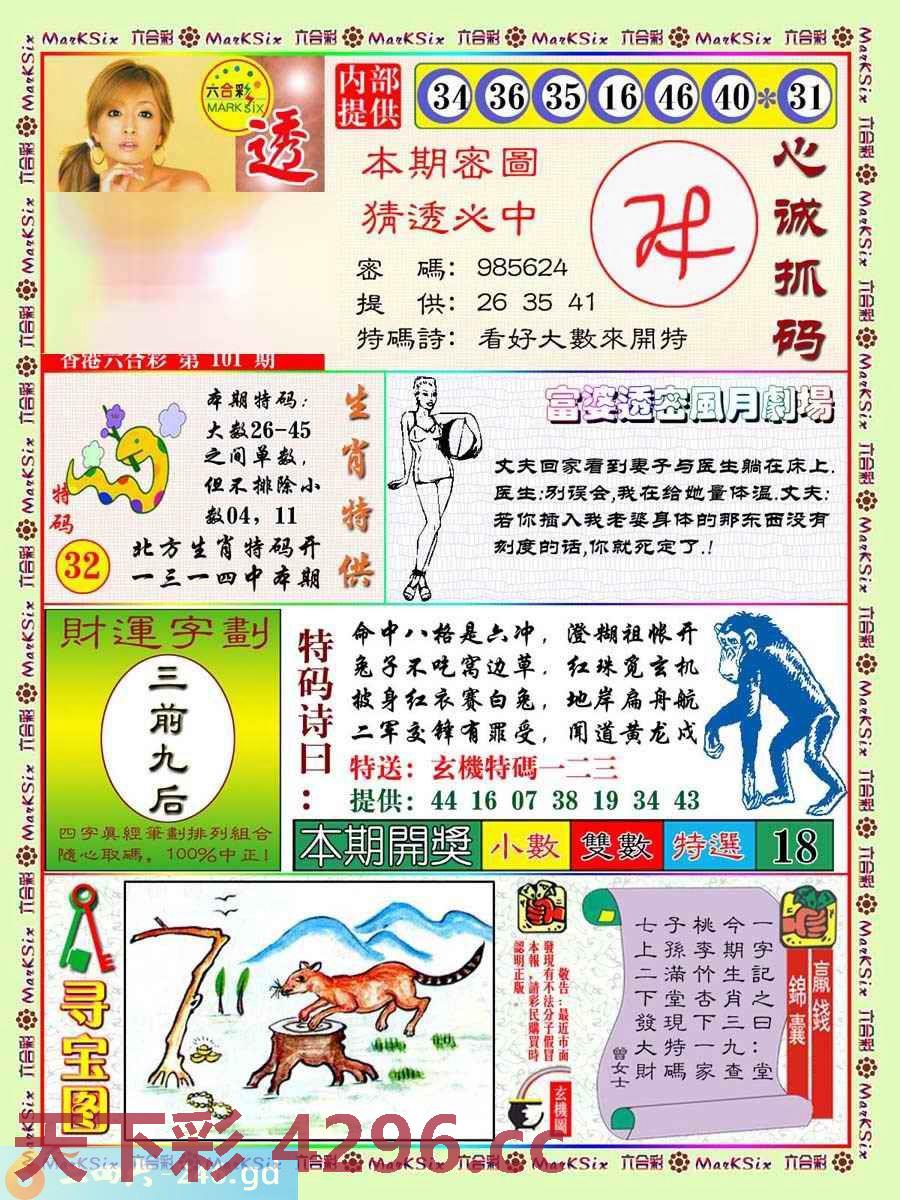 MarKSix 六合彩 MarKSix 六合彩 MarKSix 六合彩 MarKSix 六合彩 MarKSix 六合彩
六合彩
MARK SIX
透
内部
提供
34 36 35 16 46 40 * 31
本期密圖
猜透必中
密 碼: 985624
提 供: 26 35 41
特碼詩: 看好大數來開特
心诚抓码
香港六合彩 第 101 期
本期特码:
大数26-45
之间单数,
但不排除小
数04, 11
北方生肖特码开
一三一四中本期
特码
32
生肖特供
富婆透密風月劇場
丈夫回家看到妻子与医生躺在床上.
医生:别误会,我在给她量体温.丈夫:
若你插入我老婆身体的那东西没有
刻度的话,你就死定了.!
財運字劃
三前九后
四字真經筆劃排列組合
隨心取碼。100%中正!
特码诗曰:
命中八格是六冲, 澄糊祖帐开
兔子不吃窝边草, 红珠觅玄机
披身红衣赛白兔, 地岸扁舟航
二军交锋有罪受, 闻道黄龙戍
特送: 玄機特碼一二三
提供: 44 16 07 38 19 34 43
本期開獎 小數 雙數 特選 18
寻宝图
敬告:最近市面
發現有不法分子假冒
本報,請彩民購買時
認明正版。
玄機圖
一字記之曰:堂
今期生肖三九查
桃李竹杏下一家
子孫滿堂現特碼
七上二下發大財
曾女士
贏錢
錦囊
天下彩 4296.cc
246.gd
MarKSix 六合彩 MarKSix 六合彩 MarKSix 六合彩 MarKSix 六合彩 MarKSix 六合彩